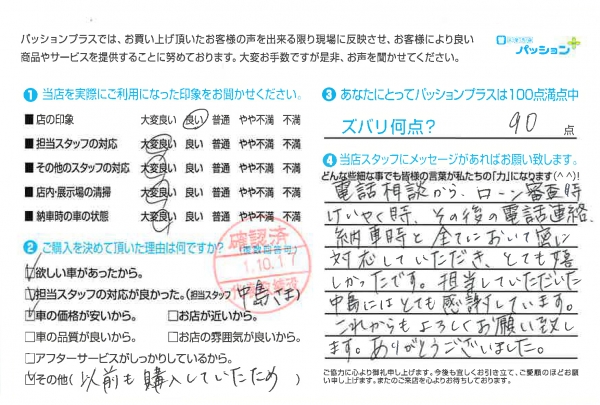 パッションプラスでは、お買い上げ頂いたお客様の声を出来る限り現場に反映させ、お客様により良い
商品やサービスを提供することに努めております。大変お手数ですが是非、お声を聞かせてください。
パッション+
1 当店を実際にご利用になった印象をお聞かせください。
■店の印象 大変良い 良い 普通 やや不満 不満
■担当スタッフの対応 大変良い 良い 普通 やや不満 不満
■その他のスタッフの対応 大変良い 良い 普通 やや不満 不満
■店内・展示場の清掃 大変良い 良い 普通 やや不満 不満
■納車時の車の状態 大変良い 良い 普通 やや不満 不満
2 ご購入を決めて頂いた理由は何ですか? (複数回答可)
確認済
1.10.1
□欲しい車があったから。
□担当スタッフの対応が良かった。(担当スタッフ 中島さま)
□車の価格が安いから。 □お店が近いから。
□車の品質が良いから。 □お店の雰囲気が良いから。
□アフターサービスがしっかりしているから。
□その他( 以前も購入していたため )
3 あなたにとってパッションプラスは100点満点中
ズバリ何点? 90 点
4 当店スタッフにメッセージがあればお願い致します。
どんな些細な事でも皆様の言葉が私たちの「力」になります(^^)!
電話相談から、ローン審査時
けいやく時、その後の電話連絡、
納車時と全てにおいて密に
対応していただき、とても嬉
しかったです。担当していただいた
中島にはとても感謝しています。
これからもよろしくお願い致し
ます。ありがとうございました。
ご協力に心より御礼申し上げます。今後も宜しくお引き立て、ご愛顧のほどお願い申し上げます。またのご来店を心よりお待ちしております。